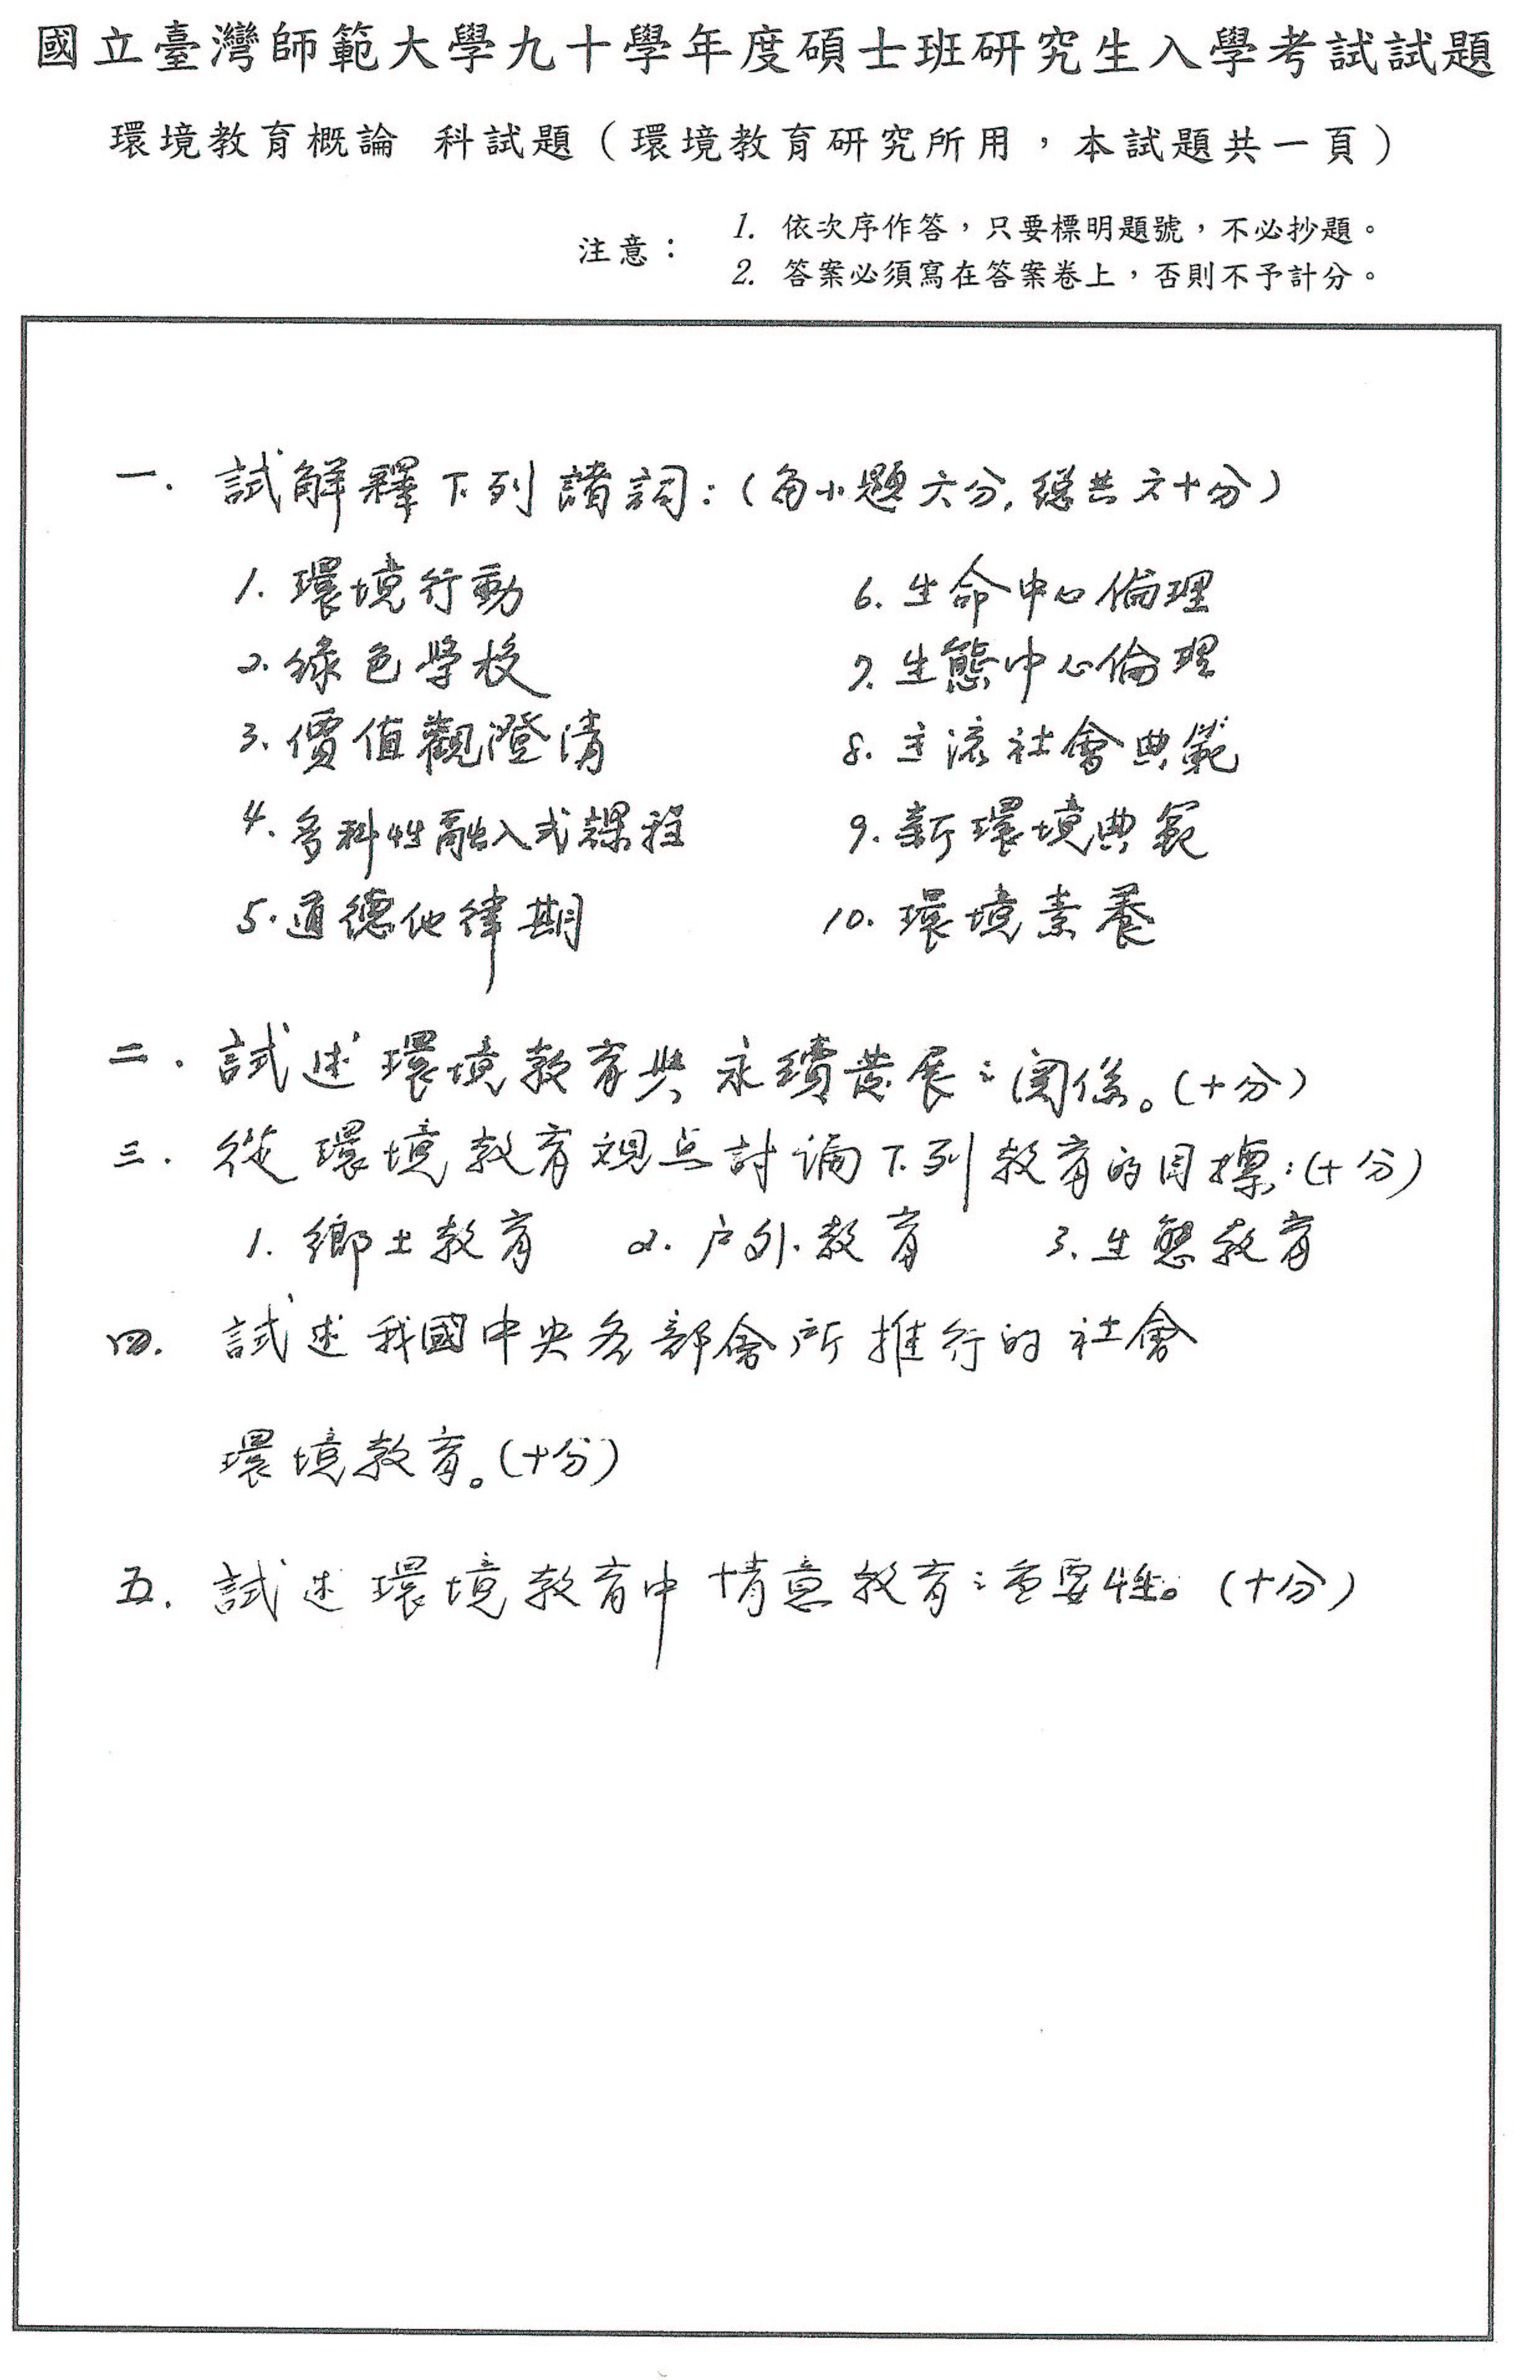 國立臺灣師範大學九十學年度碩士班研究生入學考試試題
環境教育概論 科試題（環境教育研究所用，本試題共一頁）
注意：
1. 依次序作答，只要標明題號，不必抄題。
2. 答案必須寫在答案卷上，否則不予計分。
一. 試解釋下列諸詞:(每小題六分, 總共六十分)
1. 環境行動
2. 綠色學校
3. 價值觀澄清
4. 多科性融入式課程
5. 道德他律期
6. 生命中心倫理
7. 生態中心倫理
8. 主流社會典範
9. 新環境典範
10. 環境素養
二. 試述環境教育與永續發展之關係。(十分)
三. 從環境教育觀点討論下列教育的目標:(十分)
1. 鄉土教育 2. 户外教育 3. 生態教育
四. 試述我國中央各部會所推行的社會
環境教育。(十分)
五. 試述環境教育中情意教育之重要性。(十分)